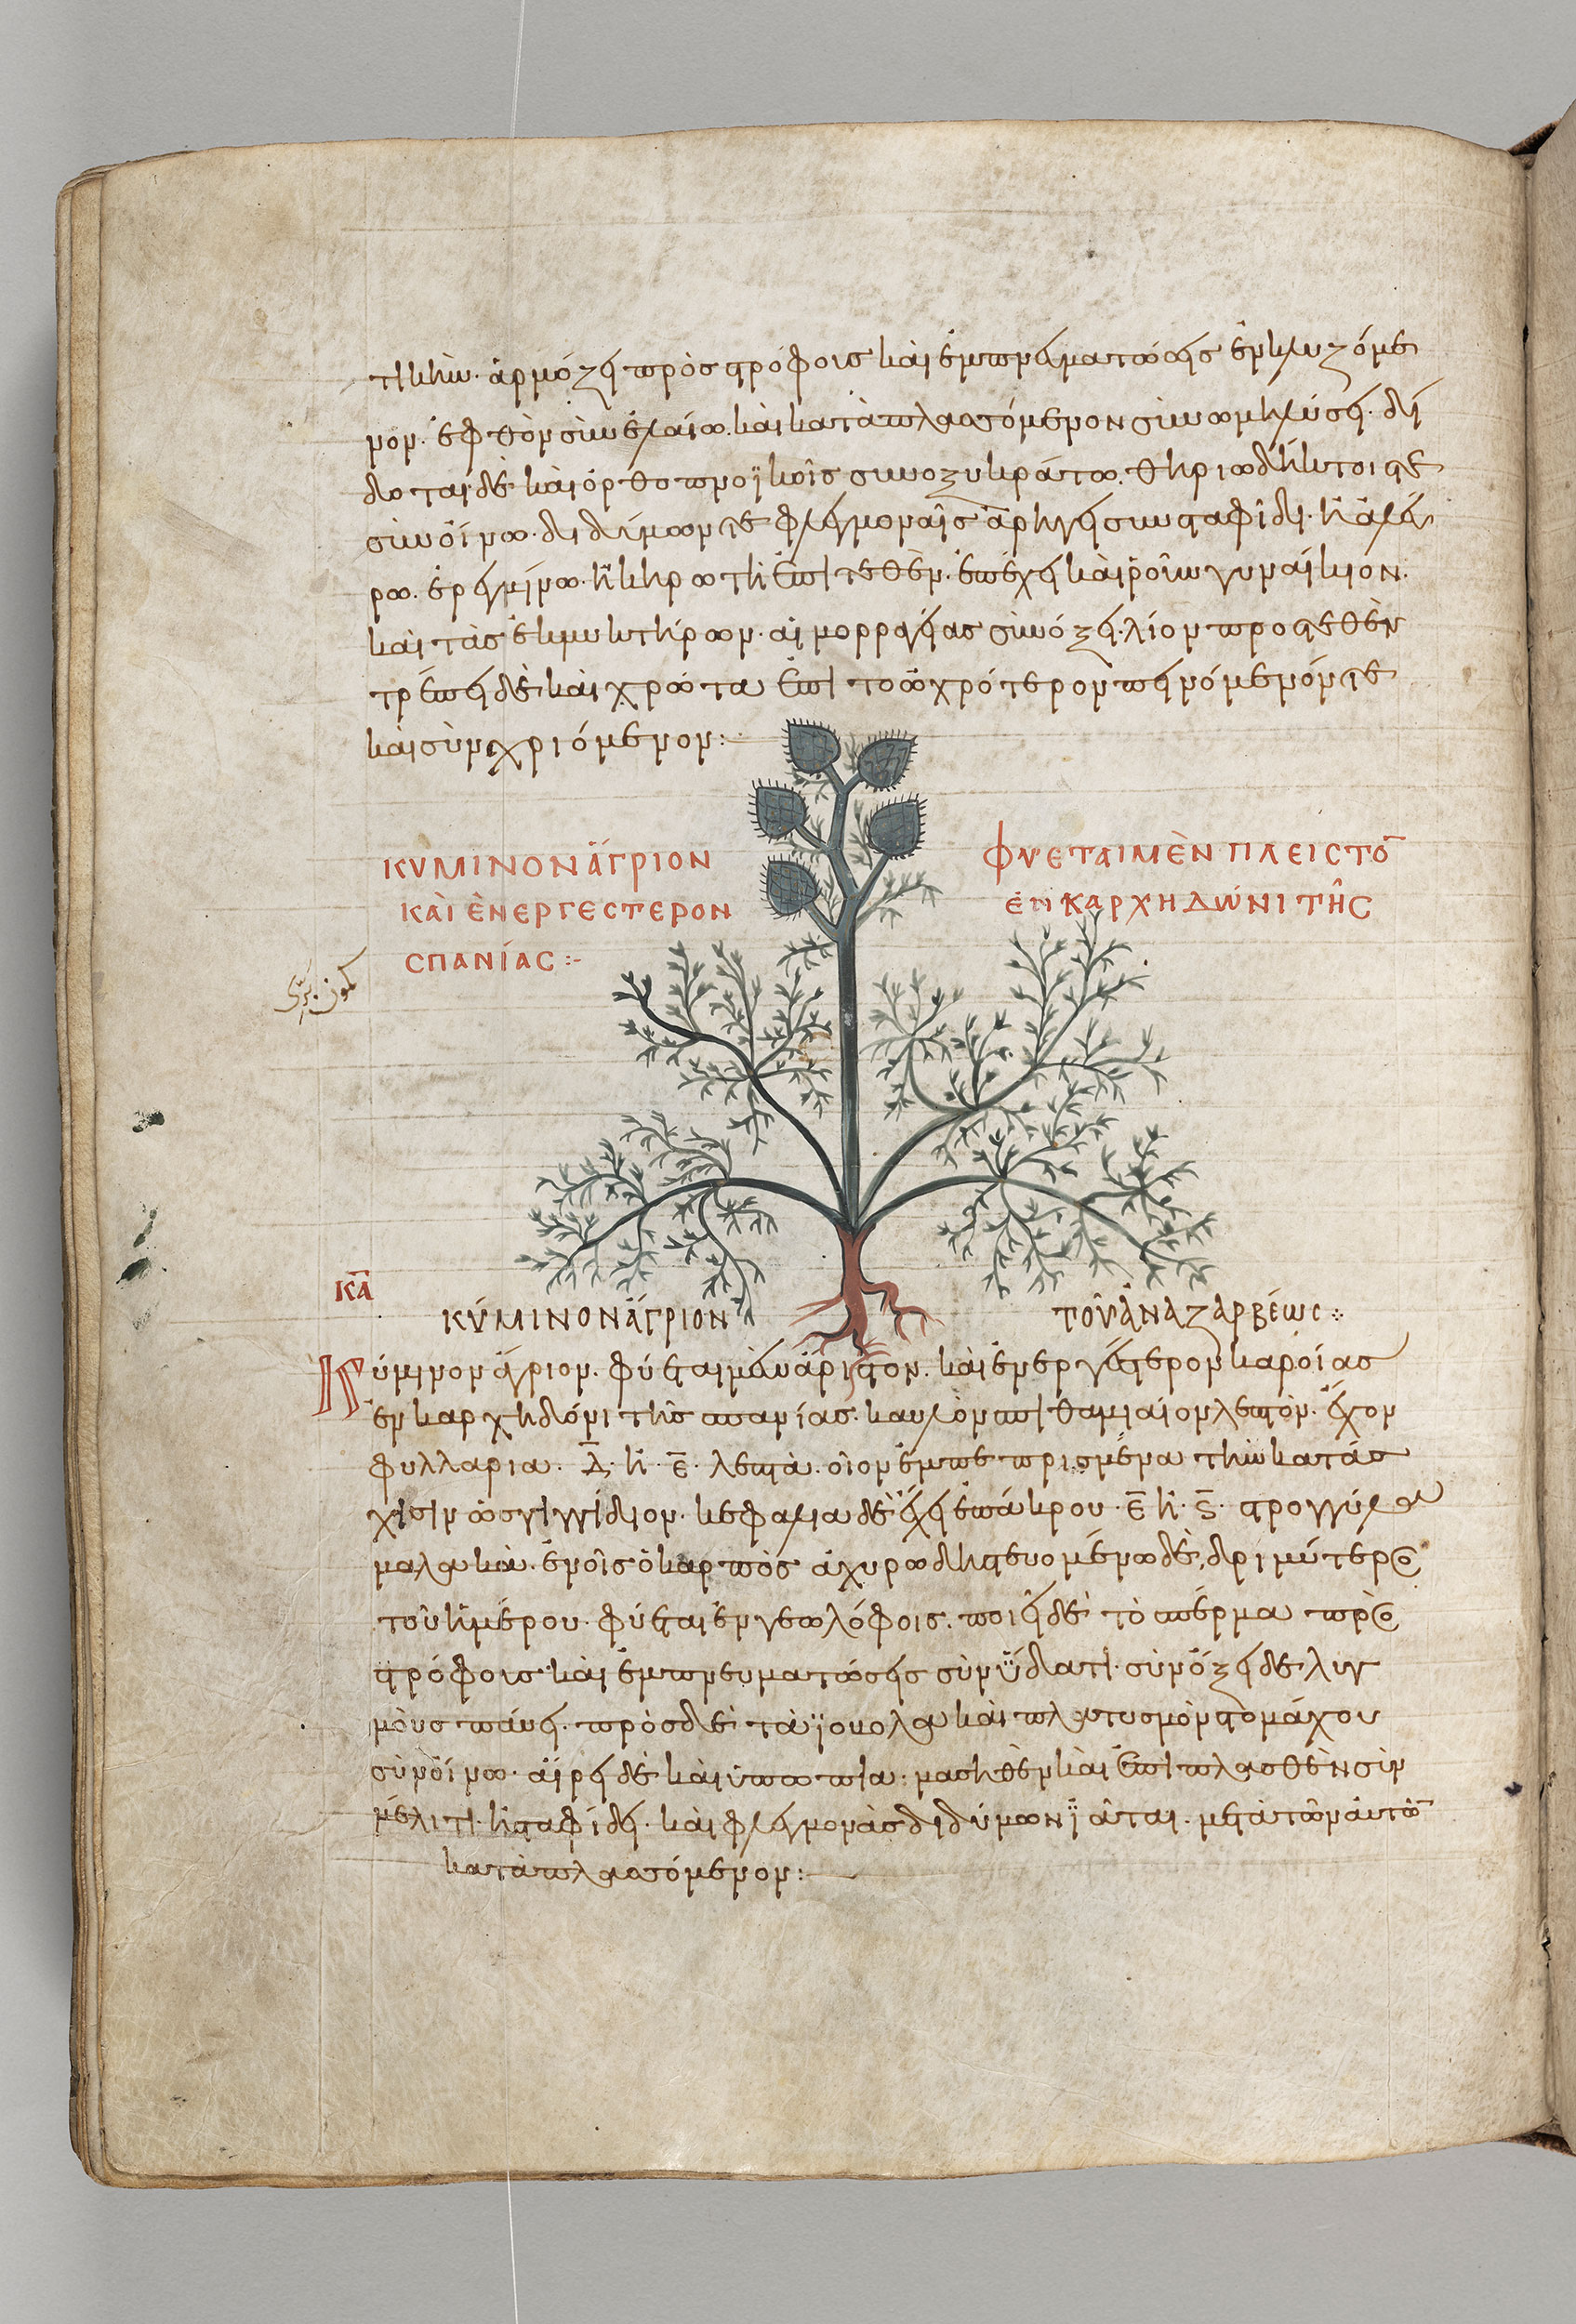 τικὴν· ἁρμόζει πρὸς στρόφοις καὶ ἐμπνευματώσεις ἐγκλυζόμε
νον· ἑφθὸν σὺν ἐλαίω· καὶ καταπλασσόμενον σὺν ὠμηλύσει· δί
δοται δὲ καὶ ὀρθοπνοϊκοῖς σὺν ὀξυκράτω· θηριοδήκτοις τε
σὺν οἴνω· διδύμων τε φλεγμοναῖς ἀρήγει σὺν σταφίδι· ἢ ἀλεύ
ρω· ἐρεγμίνω· ἢ κηρωτῆ ἐπιτεθέν· ἐπέχει καὶ ῥοῦν γυναίκιον·
καὶ τὰς ἐκ μυκτήρων· αἱμορραγίας σὺν ὄξει· λίον προστεθὲν
τρέπει δὲ καὶ χρῶτα ἐπὶ τὸ ὠχρότερον πεινόμενόν τε
καὶ συνχριόμενον:
ΚΥΜΙΝΟΝ ἌΓΡΙΟΝ
ΦΥΕΤΑΙ ΜῈΝ ΠΛΕΙСΤΟ
ΚΑῚ ἘΝΕΡΓΕСΤΕΡΟΝ
ἐπι ΚΑΡΧΗΔΏΝΙ ΤΗ͂С
СΠΑΝΊΑС :-
كمون برّى
ΚΑ
ΚΎΜΙΝΟΝ ἌΓΡΙΟΝ
ΤΟΥ͂ ἈΝΑΖΑΡΒΈΩС
Κύμινον ἄγριον· φύεται μὲν ἄριστον· καὶ ἐνεργέστερον καροίας
ἐν καρχηδόνι τῆς σπανίας· καυλὸν σπιθαμιαίον λεπτόν· ἔχον
φυλλαρια· δ· ἢ· ε· λεπτὰ· οἷον ἐμπεπρισμένα τὴν κατάσ
χισιν ὡς γιγγίδιον· κεφάλια δὲ ἔχει ἐπάκρου· ε ἢ· ς· στρογγύλα
μαλακὰ· ἐν οἷς ὁ καρπὸς ἀχυρώδης γευομένω δὲ, δριμύτερο
τοῦ ἡμέρου· φύεται ἐν γεωλόφοις· ποιεῖ δὲ τὸ σπέρμα προ
στρόφοις καὶ ἐμπνευματώσεις σὺν ὕδατι· σὺν ὄξει δὲ λυγ
μοὺς παύει· πρὸς δὲ τὰ ϊοβολα καὶ πλατυσμὸν στομάχου
σὺν οἴνω· αἴρει δὲ καὶ ὑπώπια· μασηθὲν καὶ ἐπιπλασθὲν σὺν
μέλιτι· ἢ σταφίδι· καὶ φλεγμονὰς διδύμων ϊᾶται· μετὰ τῶν αὐτῶ
καταπλασσόμενον: